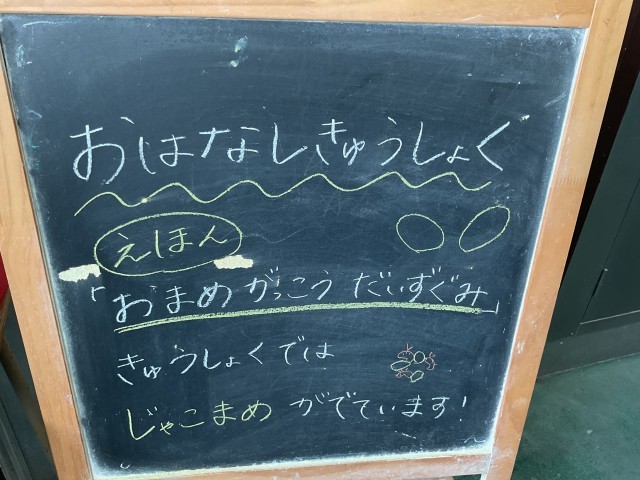 おはなしきゅうしょく
えほん
「おまめがっこう だいずぐみ」
きゅうしょくでは
じゃこまめ がでています!